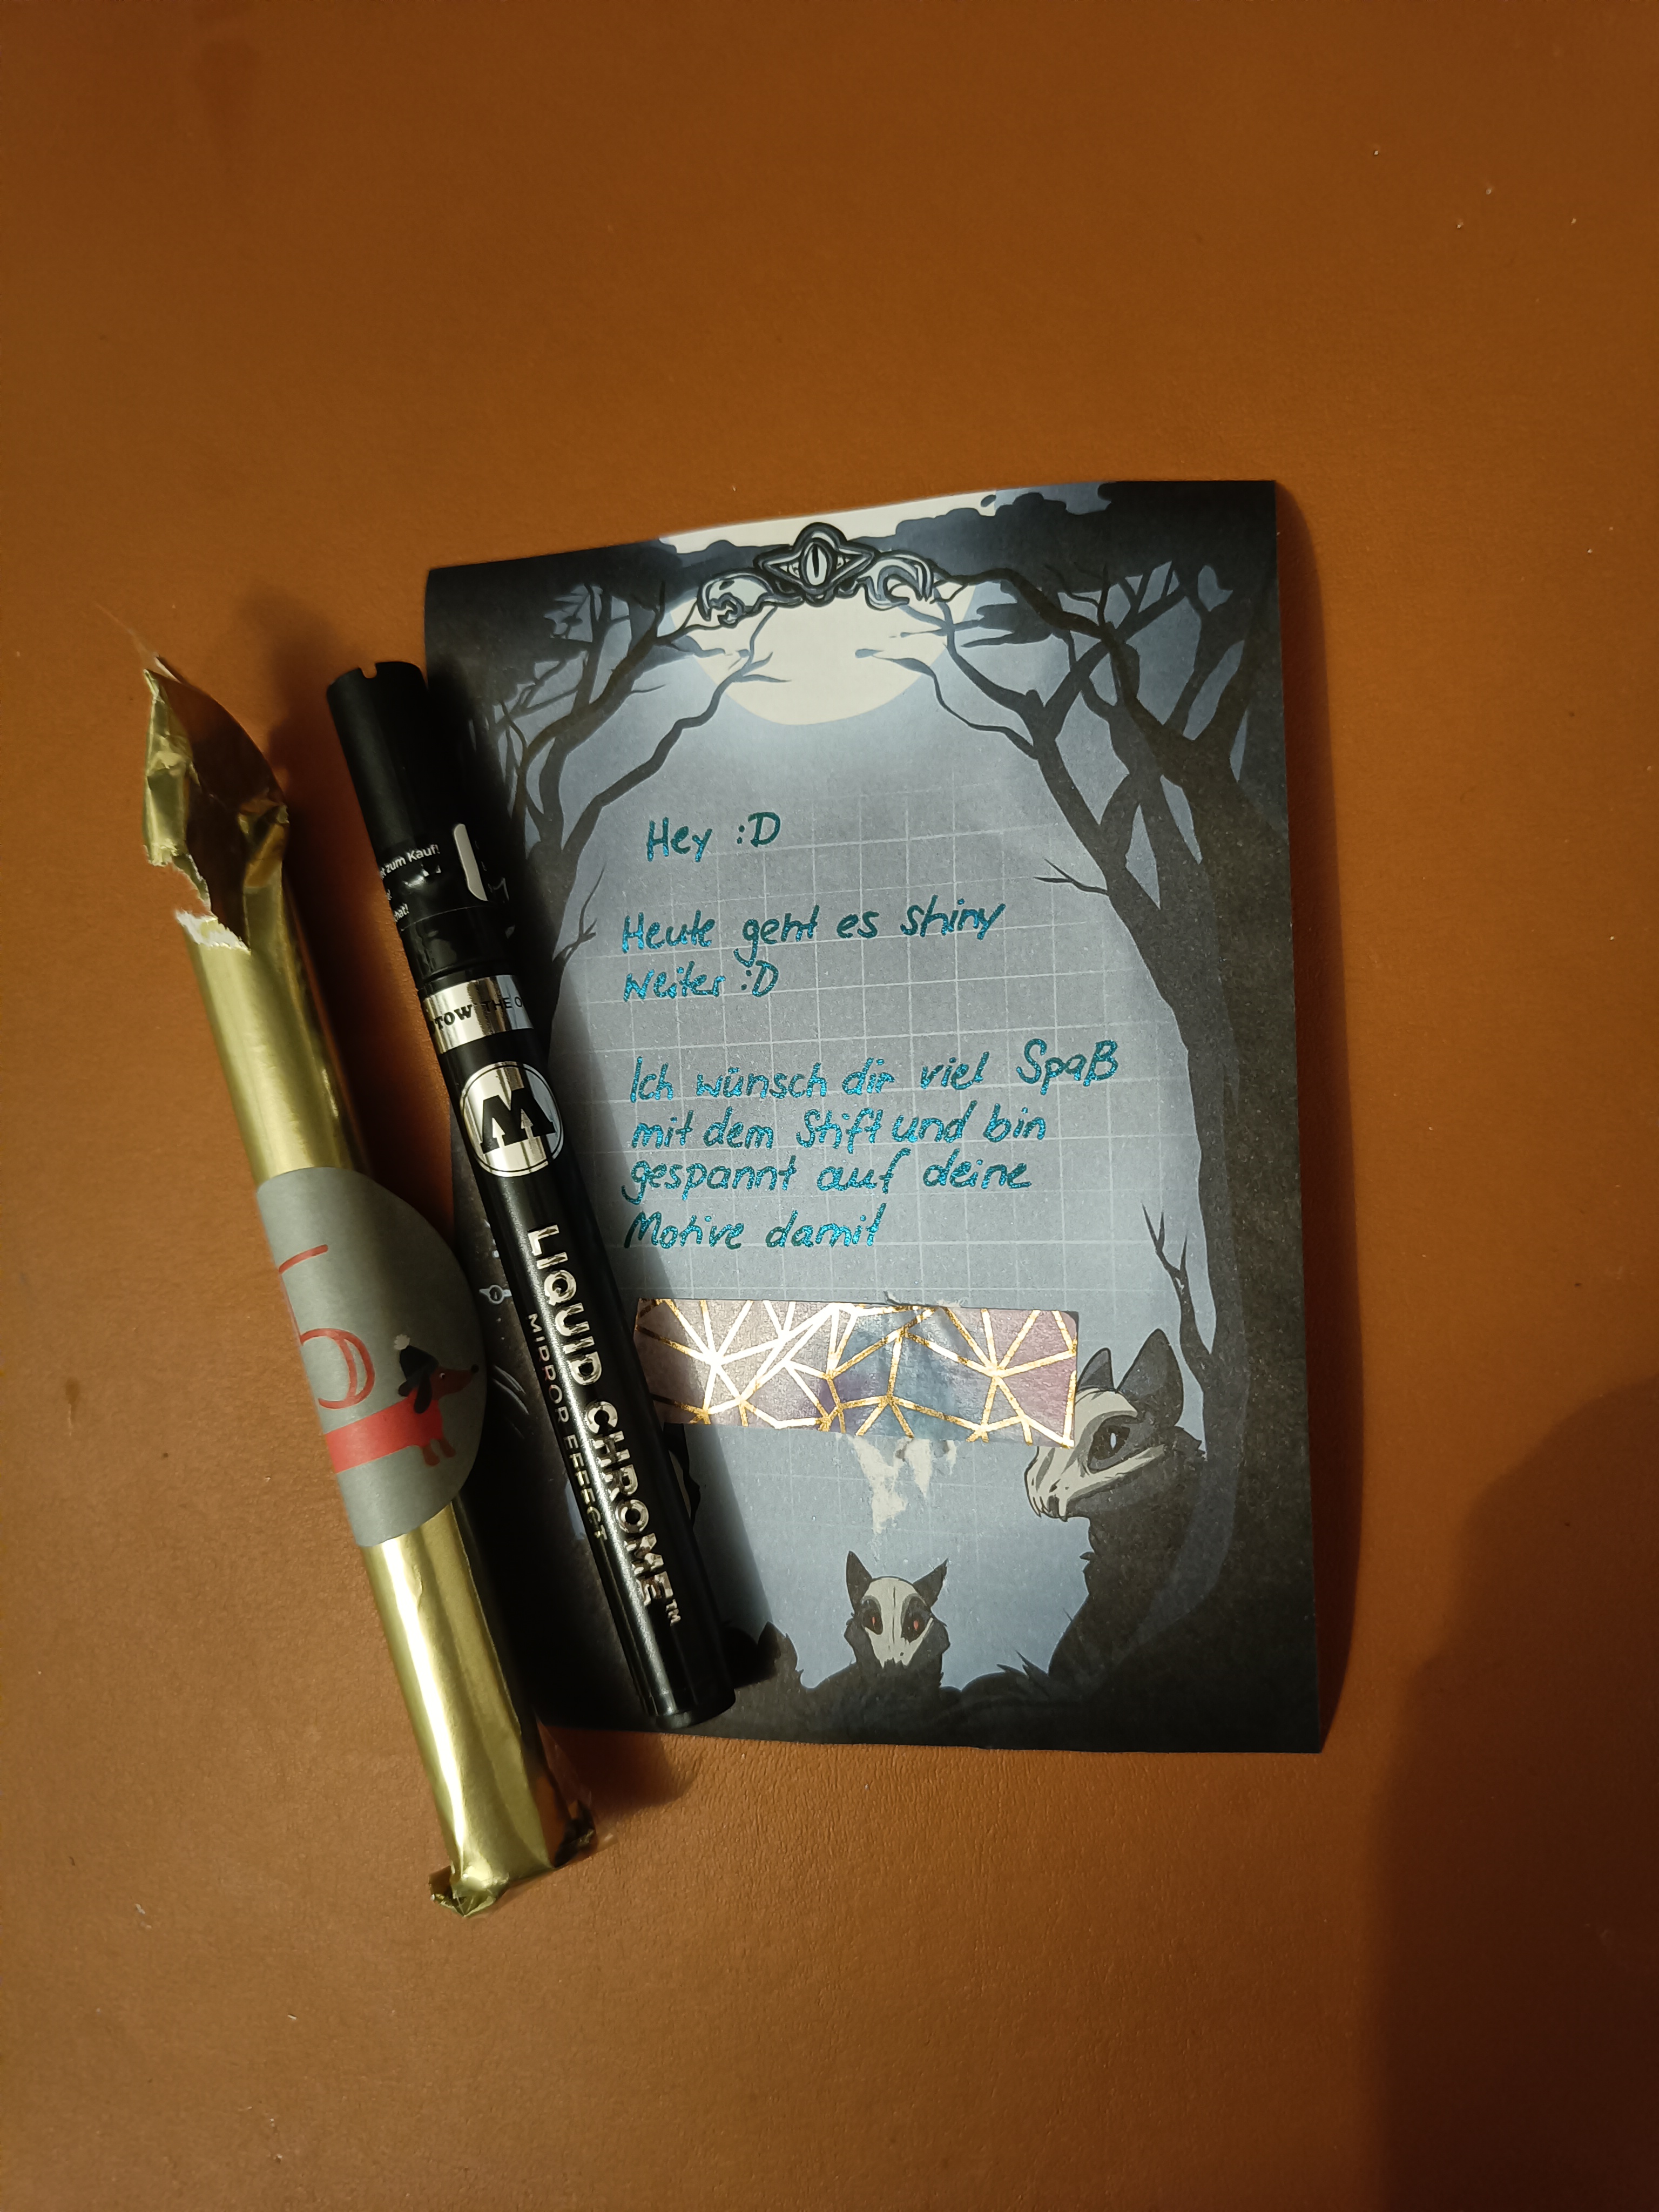 Hey :D
Heute geht es shiny
weiter :D
Ich wünsch dir viel Spaß
mit dem Stift und bin
gespannt auf deine
Motive damit
zum Kauf!
TOW THE O
M
LIQUID CHROME™
MIRROR EFFECT
5